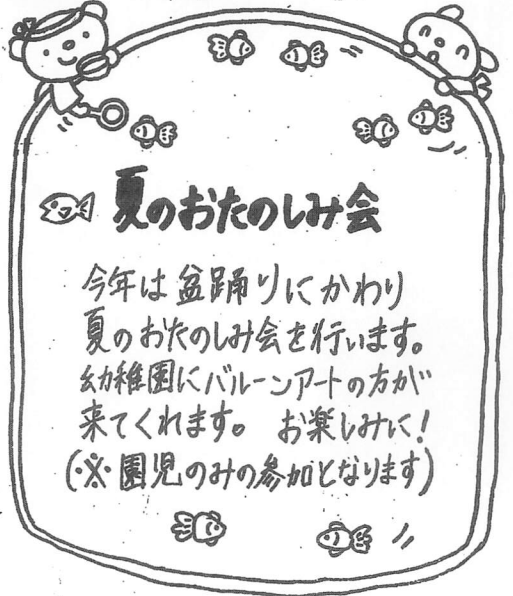 夏のおたのしみ会
今年は盆踊りにかわり
夏のおたのしみ会を行います。
幼稚園にバルーンアートの方が
来てくれます。 お楽しみに!
(※園児のみの参加となります)